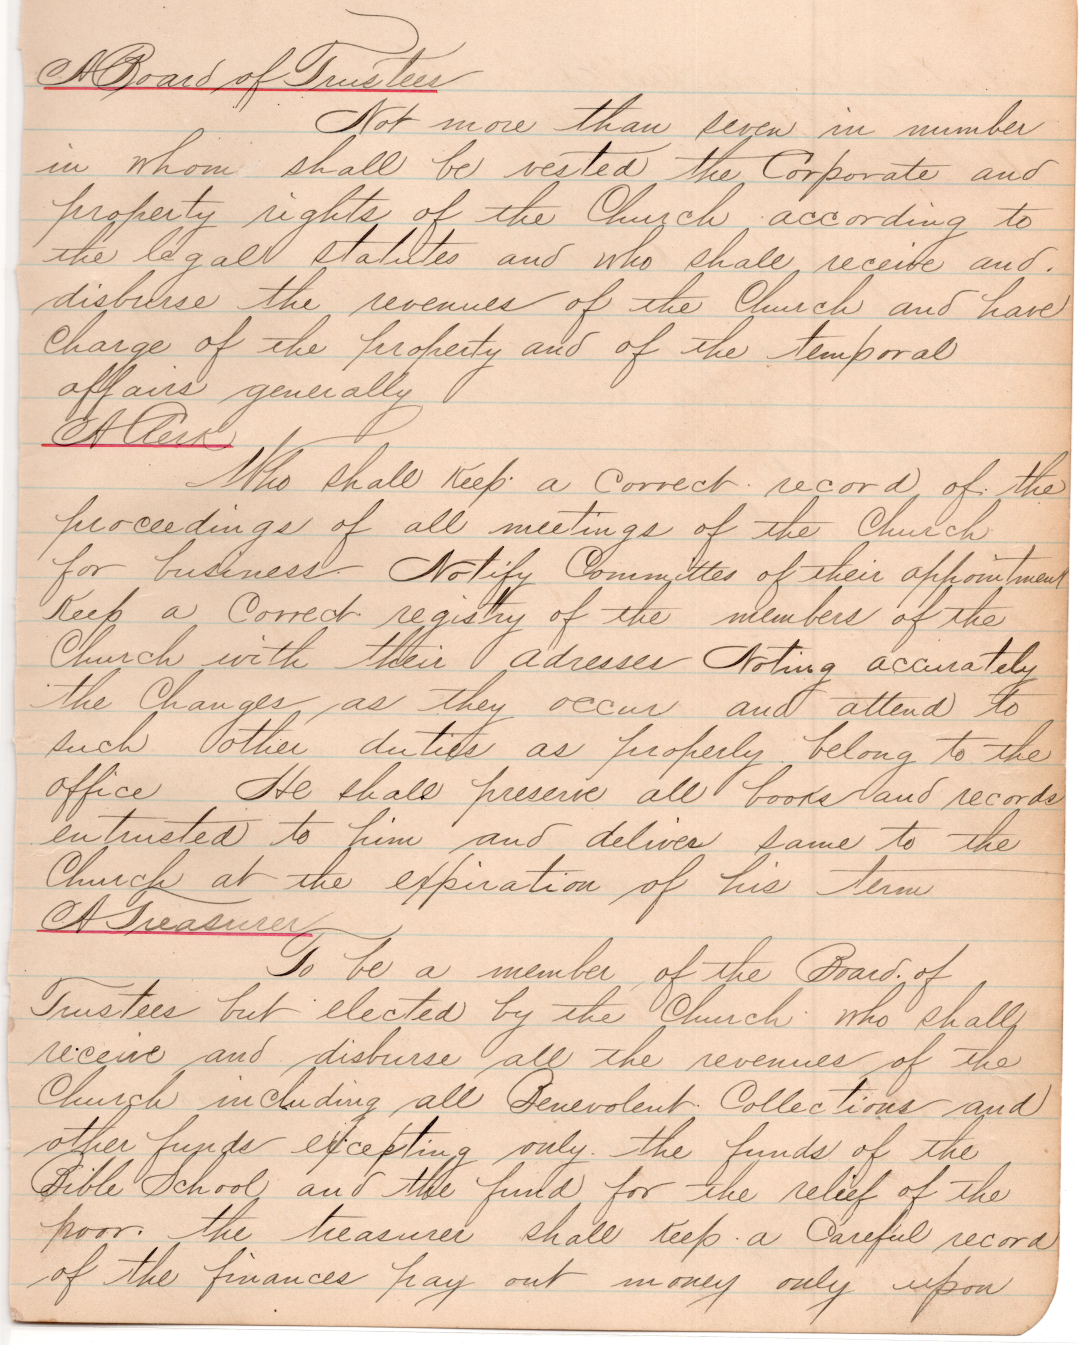 A Board of Trustees
Not more than seven in number
in whom shall be vested the Corporate and
property rights of the Church according to
the legal statutes and who shall receive and.
disburse the revenues of the Church and have
Charge of the property and of the temporal
affairs generally
A Clerk
Who shall Keep a Correct record of the
proceedings of all meetings of the Church
for business Notify Committes of their appointment
Keep a Correct registry of the members of the
Church with their adresses Noting accurately
the Changes as they occur and attend to
such other duties as properly belong to the
office He shall preserve all books and records
entrusted to him and deliver same to the
Church at the expiration of his term
A Treasurer
To be a member of the Board of
Trustees but elected by the Church who shall
receive and disburse all the revenues of the
Church including all Benevolent Collections and
other funds excepting only the funds of the
Bible School and the fund for the relief of the
poor. the treasurer shall Keep a Careful record
of the finances pay out money only upon